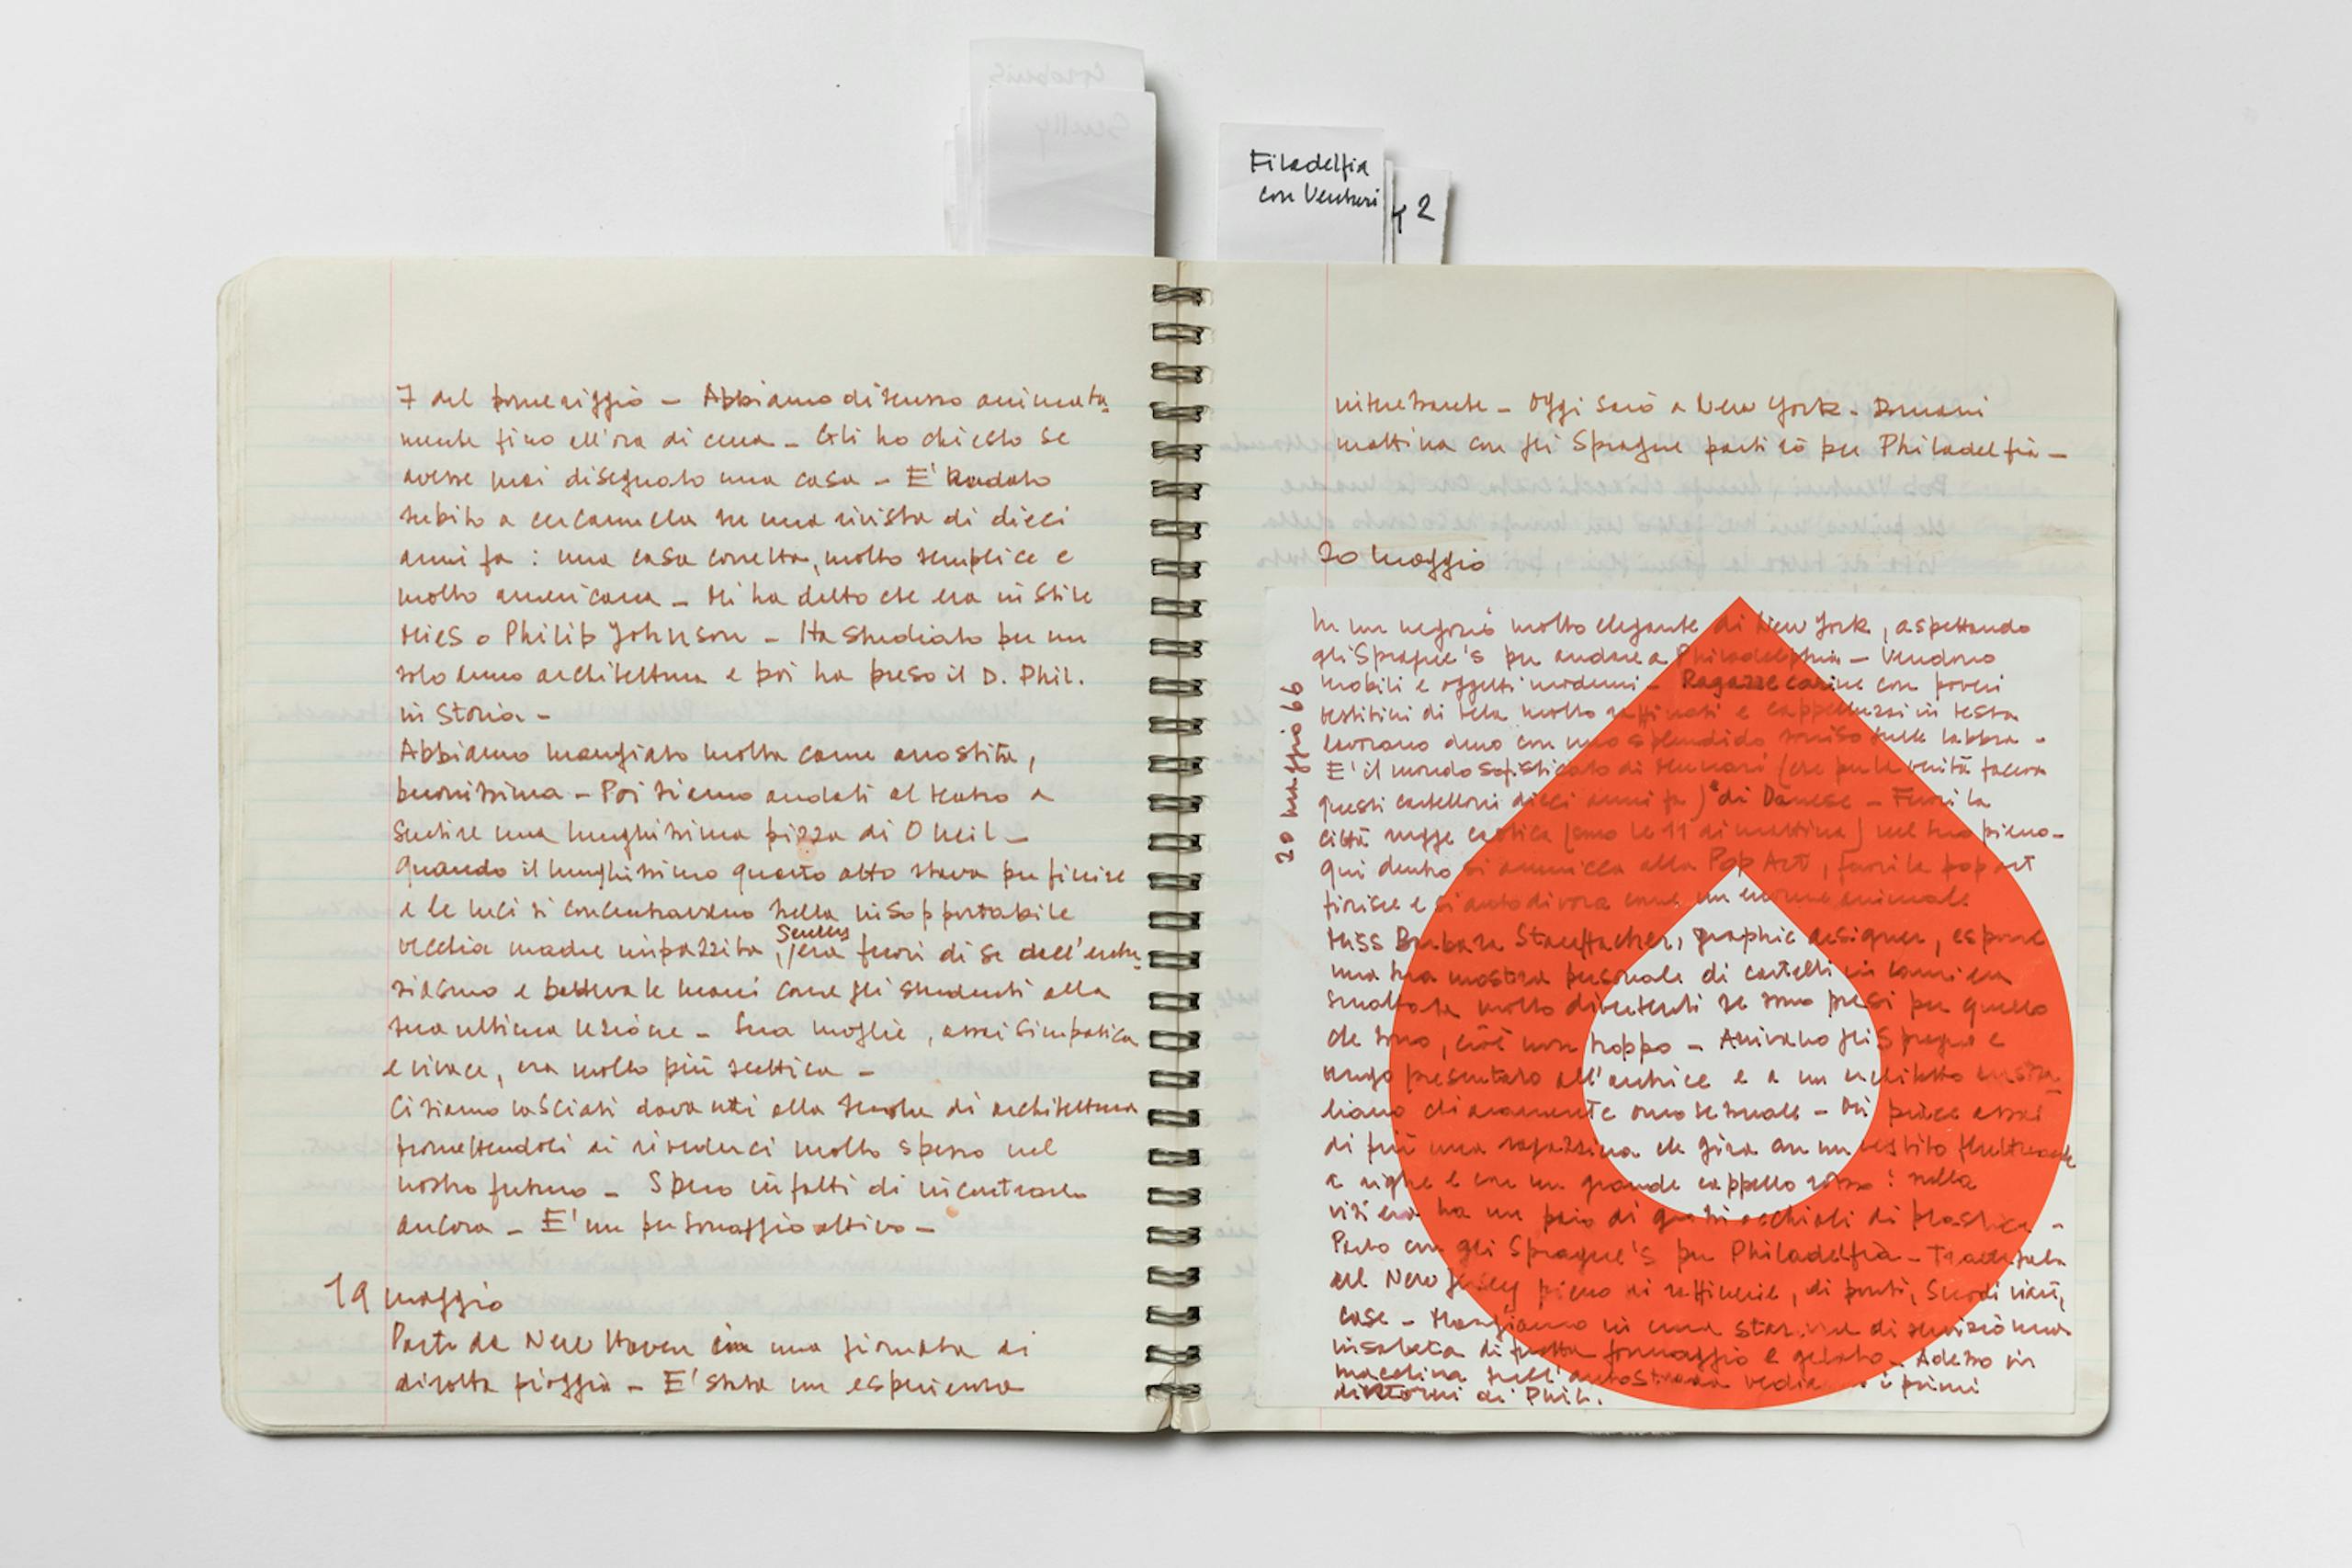 Filadelfia
con Venturi
2
7 del pomeriggio – Abbiamo discusso animata
mente fino all'ora di cena – Gli ho chiesto se
avesse mai disegnato una casa – E' andato
subito a cercarmela su una rivista di dieci
anni fa : una casa corretta, molto semplice e
molto americana – Mi ha detto che era in stile
Mies o Philip Johnson – Ha studiato per un
solo anno architettura e poi ha preso il D. Phil.
in Storia –
Abbiamo mangiato molta carne arrostita,
buonissima – Poi siamo andati al teatro a
sentire una lunghissima pizza di O Neil –
Quando il lunghissimo quarto atto stava per finire
e le luci si concentravano sulla insopportabile
vecchia madre impazzita, Scully era fuori di se dall'entu
siasmo e batteva le mani come gli studenti alla
sua ultima lezione – Sua moglie, assai simpatica
e vivace, era molto più scettica –
Ci siamo lasciati davanti alla scuola di architettura
promettendoci di rivederci molto spesso nel
nostro futuro – Spero infatti di incontrarlo
ancora – E' un personaggio attivo –
19 maggio
Parto da New Haven in una giornata di
dirotta pioggia – E' stata un esperienza
interessante – Oggi sarò a New York – Domani
mattina con gli Sprague partirò per Philadelfia –
20 maggio
20 maggio 66
In un negozio molto elegante di New York, aspettando
gli Sprague's per andare a Philadelphia – Vendono
mobili e oggetti moderni – Ragazze carine con poveri
vestitini di tela molto raffinati e cappelluzzi in testa
lavorano duro con uno splendido sorriso sulle labbra –
E' il mondo sofisticato di Munari (che per la verità faceva
questi cartelloni dieci anni fa) e di Danese – Fuori la
città rugge caotica (sono le 11 di mattina) nel suo pieno –
qui dentro si ammicca alla Pop Art, fuori la pop art
fiorisce e si autodivora come un enorme animale
Miss Barbara Stauffacher, graphic designer, espone
una sua mostra personale di cartelli in lamiera
smaltata molto divertenti se sono presi per quello
che sono, cioè non troppo – Arrivano gli Sprague e
vengo presentato all'autrice e a un architetto austra
liano chiaramente omosessuale – Mi piace assai
di più una ragazzina che gira con un vestito
a righe e con un grande cappello rosso : sulla
visiera ha un paio di grossi occhiali di plastica –
Parto con gli Sprague's per Philadelfia –
del New Jersey pieno di raffinerie, di ponti, snodi viari,
case – Mangiamo in una stazione di servizio una
insalata di frutta formaggio e gelato – Adesso in
macchina sull'autostrada vediamo i primi
dintorni di Phil.